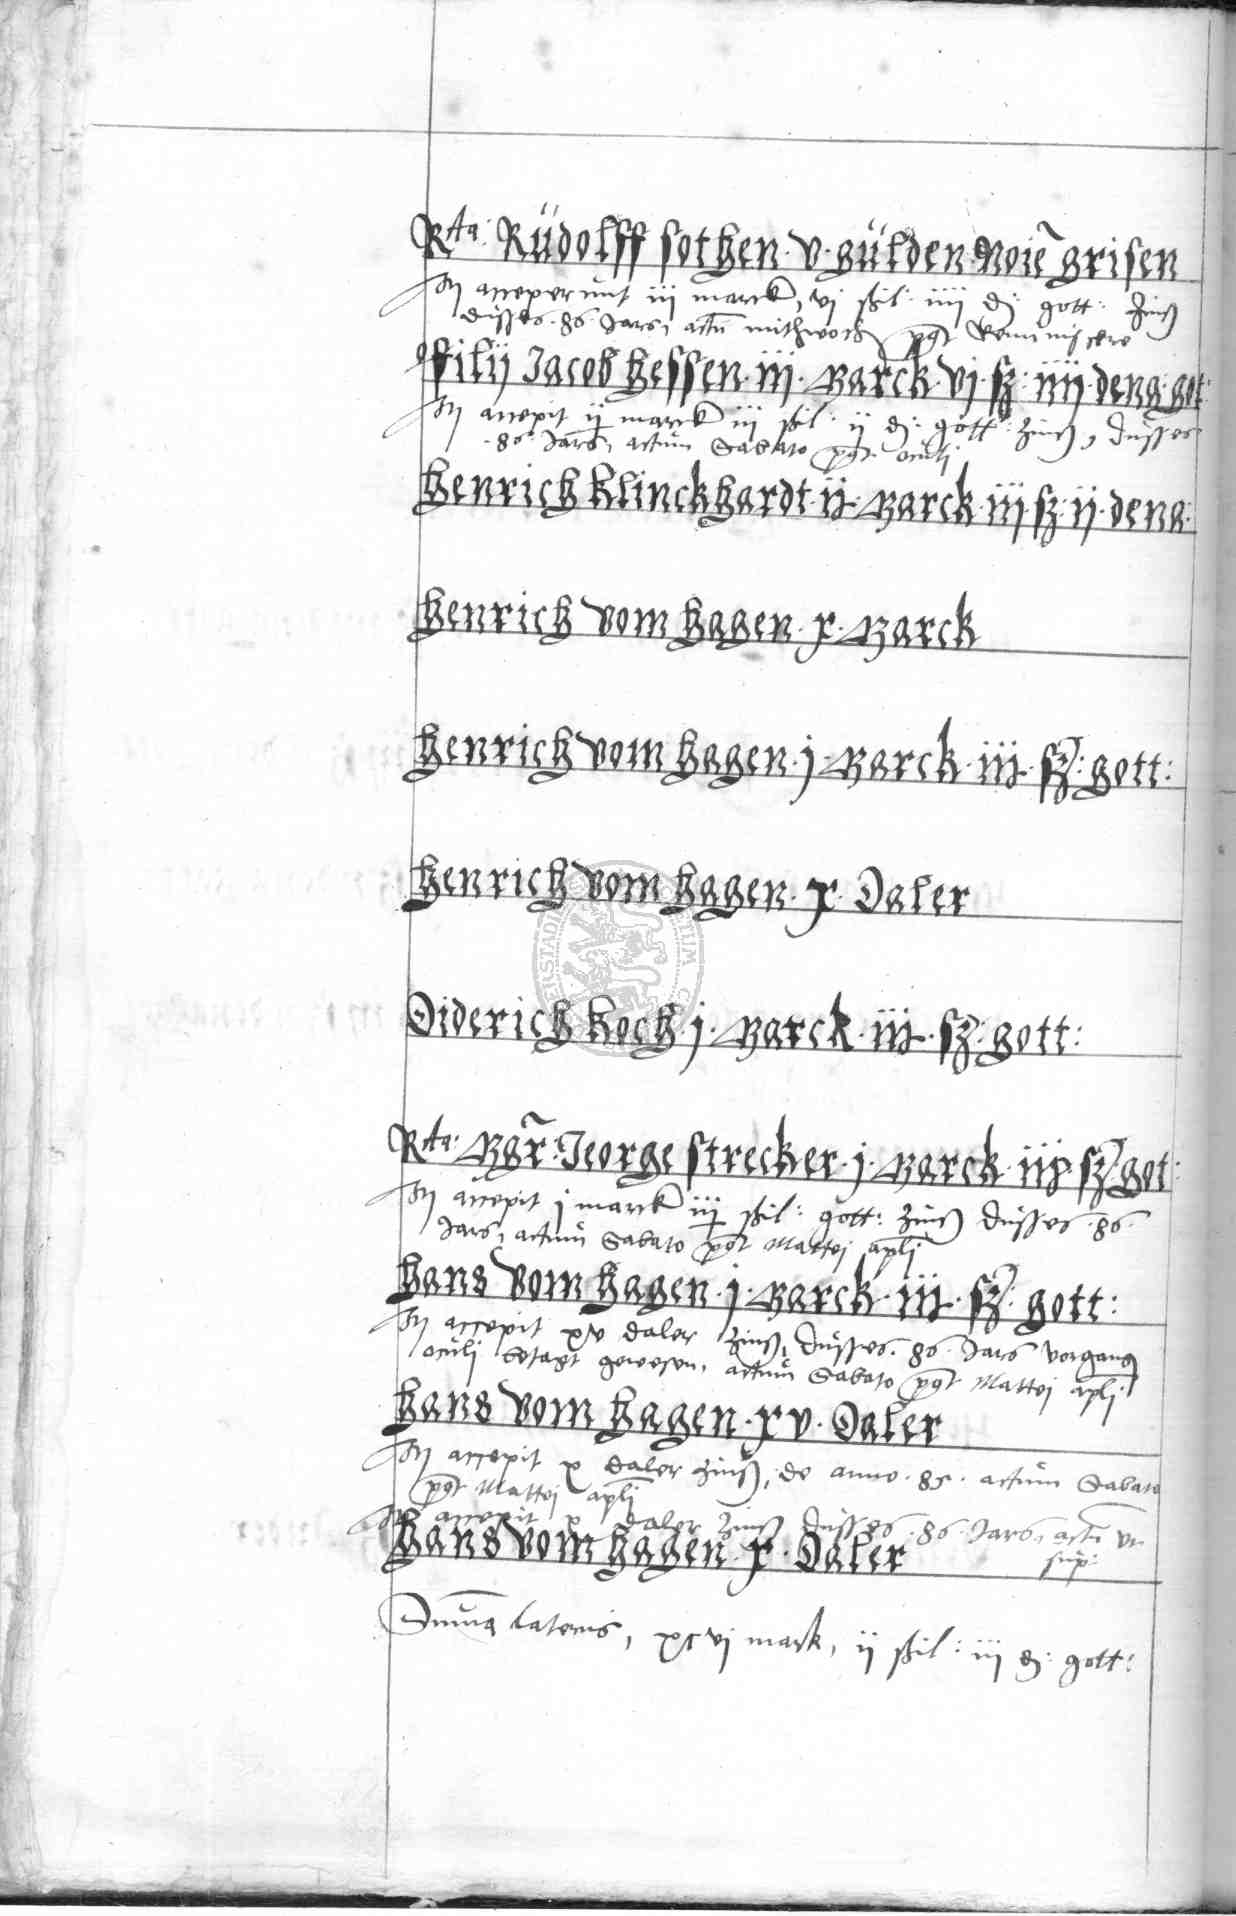 Rta: Rüdolff sothen · v · gülden Noie grisen
In acceperunt iij marck, vj ßil: iiij d: gott: Zinß
düsses · 86 · Jars, actu mithwoch post Reminiscere
filij Jacob hessen · iij · Marck · vj · sz: iiij · dena: got:
In accepit ij marck iij ßil: ij d: gott: Zinß, düsses
· 86 · Jars, actum Sabato post oculi
Henrich Klinckhardt · ij · Marck · iij sz: ij · dena:
Henrich vom Hagen · x · Marck
Henrich vom Hagen · j · Marck · iij · sz: gott:
Henrich vom Hagen · x · Daler
Diderich Koch j · Marck · iij · sz: gott:
Rta: Mgr: Jeorge strecker · j · Marck · iij · sz: got:
In accepit j marck iij ßil: gott: Zinß düsses · 86 ·
Jars, actum Sabato post Mattej aplj
Hans vom Hagen · j · Marck · iij · sz: gott:
In accepit xv daler Zinß, düsses · 86 · Jars vorgang
oculj betagt gewesen, actum Sabato post Mattej aplj
Hans vom Hagen · xv · Daler
In accepit x daler Zinß, de anno · 85 · actum Sabato
post Mattej aplj
In accepit x daler Zinß düsses · 86 · Jars, actu vt
sup:
Hans vom Hagen · x · Daler
Suma lateris, xcvj mark, ij ßil: iij d: gott: